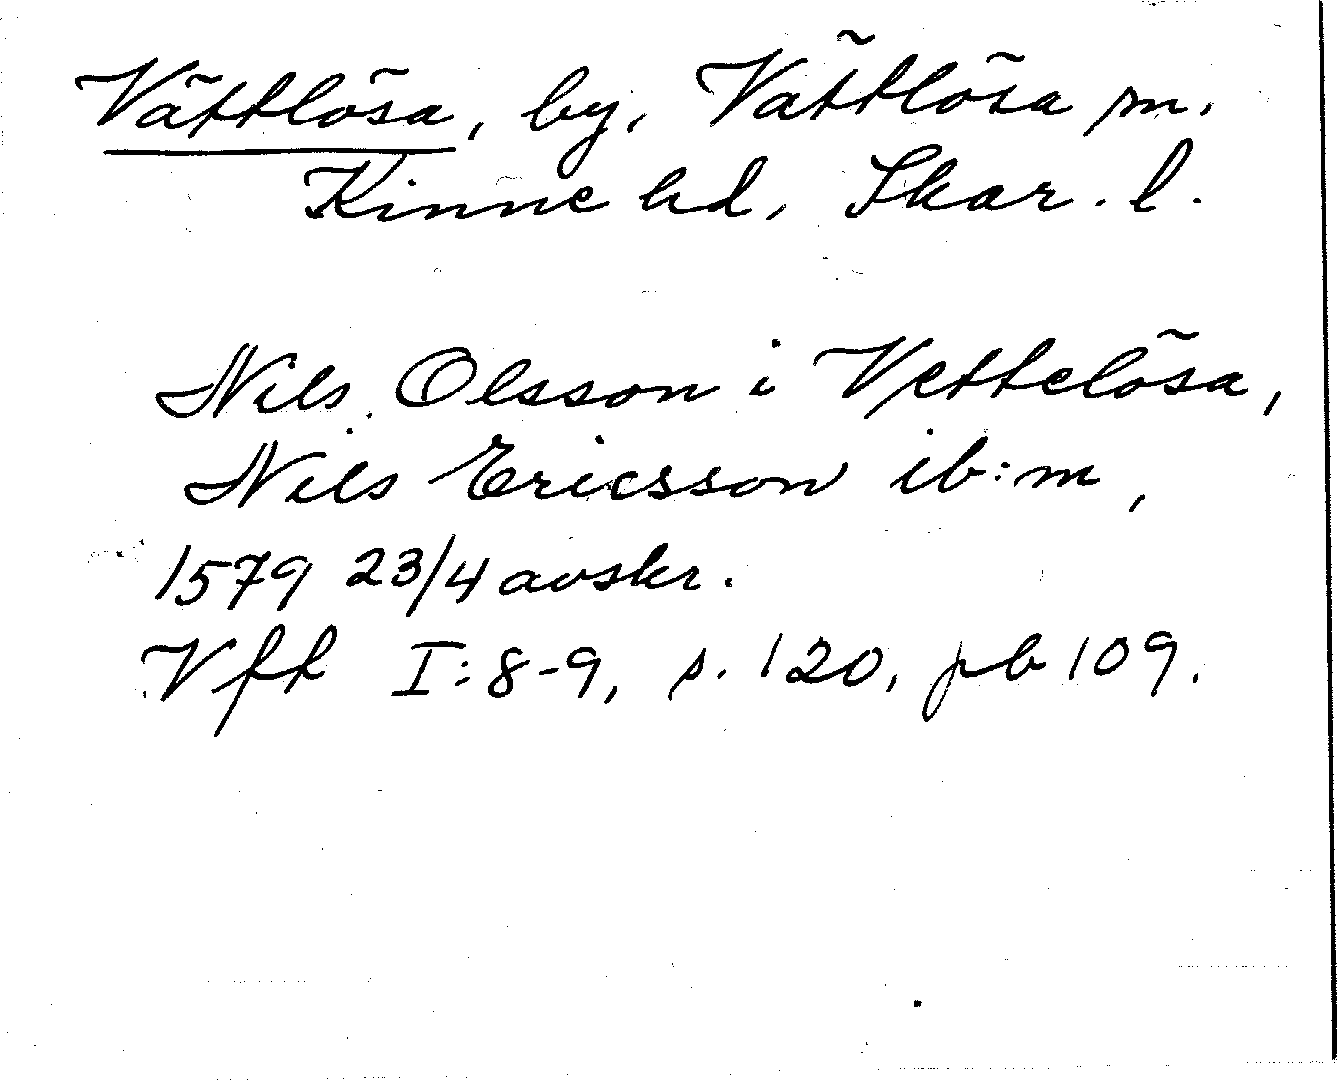 Vättlösa, by, Vättlösa sn.
Kinne hd, Skar. l.
Nils Olsson i Vettelösa,
Nils Ericsson ib:m,
1579 23/4 avskr.
Vft I:8-9, s. 120, pb 109.